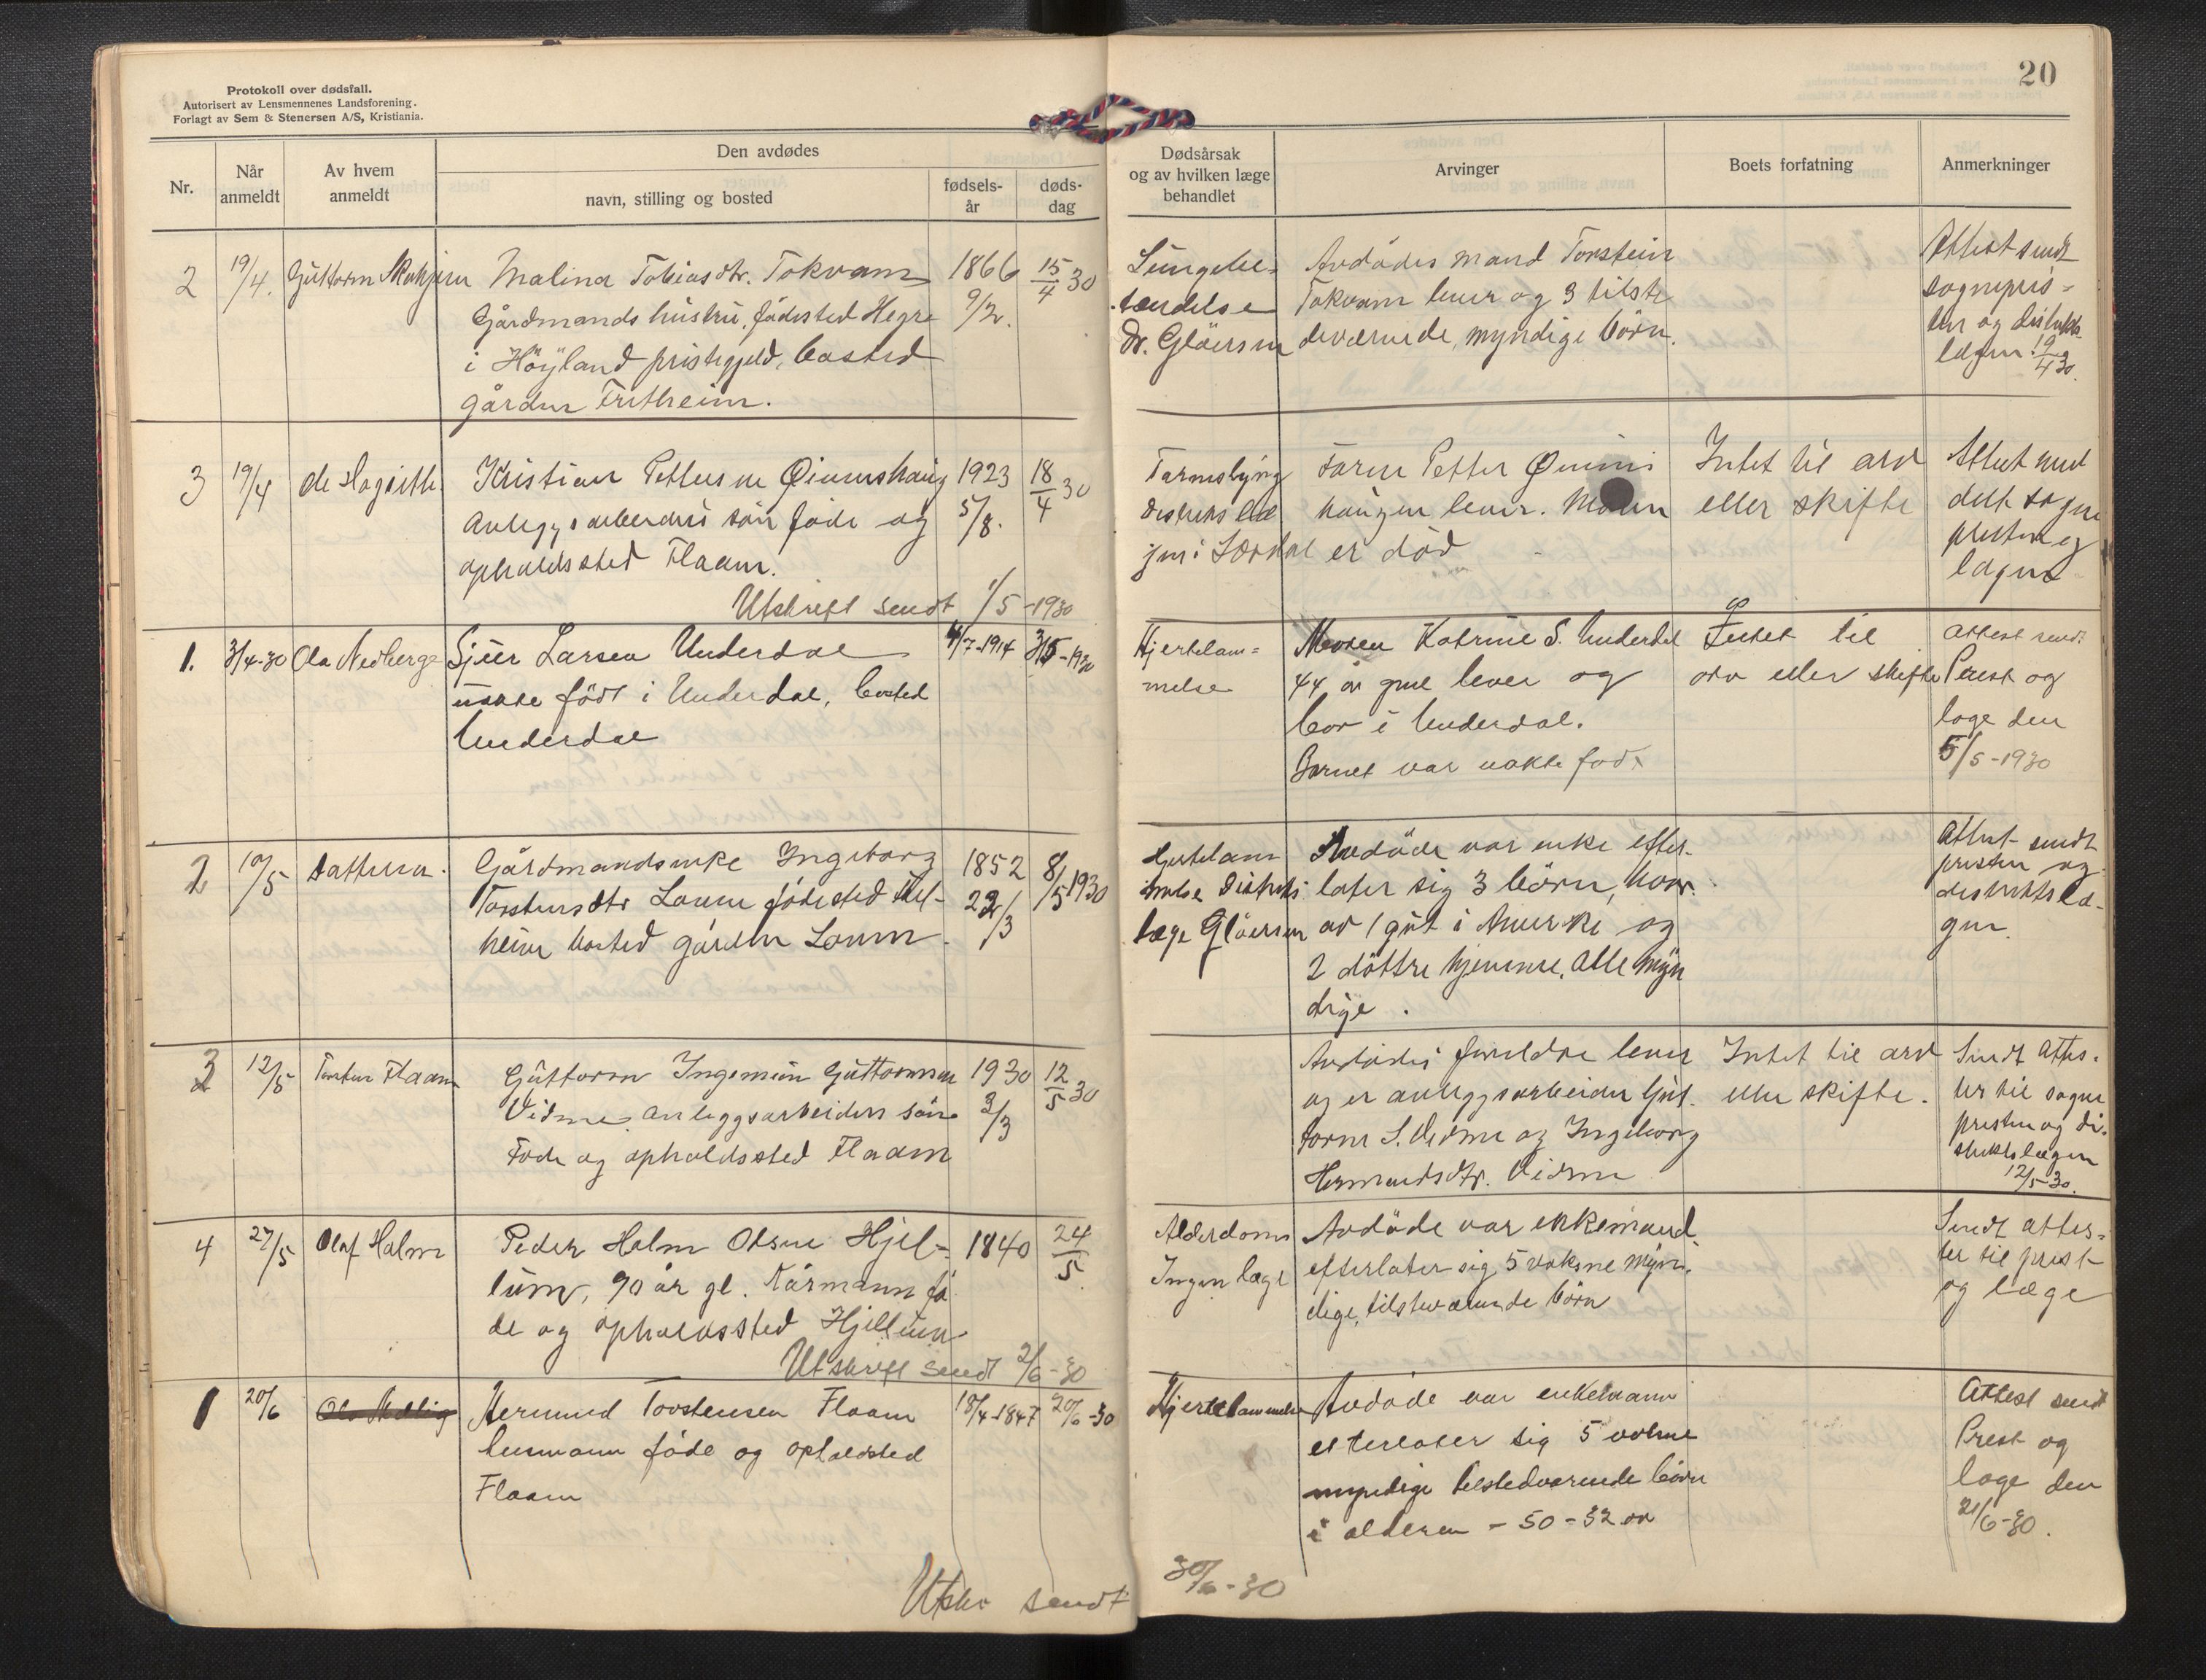 Protokoll over dødsfall.
Autorisert av Lensmennenes Landsforening.
Forlagt av Sem & Stenersen A/S, Kristiania.
20
Nr.
Når
anmeldt
Av hvem
anmeldt
Den avdødes
navn, stilling og bosted
fødsels-
år
døds-
dag
Dødsårsak
og av hvilken læge
behandlet
Arvinger
Boets forfatning
Anmerkninger
2
19/4.
Guttorm
Malina Tobiasdtr. Tokvam
Gårdmands hustru, fødested Hegre
i Höyland prestegjeld, bosted
gården Fretheim.
1866
9/2.
15/4 30
Lungebe-
tændelse
Dr. Gløersen
Avdødes mand Torstein
Tokvam lever og 3 tilste
deværende, myndige börn.
Attest sendt
sogneprs-
ten og distrikts
lægen 19/4 30.
3
19/4
Kristian Pettersen
Anleggsarbeiders sön föde og
opholdssted Flaam.
Utskrift sendt 1/5-1930
1923
5/8.
18/4 30
Tarmslyng
distriktslæ
gen i Lærdal
Faren Petter
haugen lever. Moren
er död
Intet til arv
eller skifte
Attest med
delt sogne
presten og
lægen
1.
3/4-30
Ola Nedberge
Sjur Larsen Underdal
födt i Underdal, bosted
Underdal
4/7-1914
3/5-1930
Hjertelam=
melse
Moren Katrine S. Underdal
44 år gml lever og
bor i Underdal.
Barnet var uekte födt
Intet til
arv eller skifte
Attest sendt
Prest og
læge den
5/5-1930
2
10/5
Datteren.
Gårdmandsenke Ingeborg
Torstensdtr fødested
heim bosted gården
1852
22/3
8/5 1930
Hjertelam
melse Distrikts
læge Gløersen
Avdöde var enke efter-
later sig 3 börn, hvor-
av 1 gut i Amerika og
2 döttre hjemme. Alle myn
dige.
Attest sendt
presten og
distriktslæ-
gen.
3
12/5
Flaam
Guttorm Guttormsen
Vidme, anleggsarbeiders sön
Föde og opholdssted Flaam
1930
3/3
12/5 30
Avdödes foreldre lever
og er anleggsarbeider Gut-
torm S. Vidme og Ingeborg
Hermundsdtr. Vidme
Intet til arv
eller skifte.
Sendt attes-
ter til sogne
presten og di-
striktslægen
12/5-30.
4
27/5
Olaf Holm
Peder Holm Olsen Hjel-
lum, 90 år gl. Kårmann fö
de og opholdssted Hjellum
Utskrift sendt 2/6-30
1840
24/5
Alderdoms
Ingen læge
Avdöde var enkemand
efterlater sig 5 voksne myn-
dige, tilsteværende börn
Sendt attes-
ter til prest
og læge
1
20/6
Hermund Torstensen Flaam
husmann föde og opholdsted
Flaam
18/4-1847
20/6-30
Hjertelammelse
Avdöde var enkemann
efterlater sig 5 voksne
myndige tilstedværende börn
i alderen - 50-32 år
Attest sendt
Prest og
læge den
21/6-30.
Utskr sendt
30/6-30